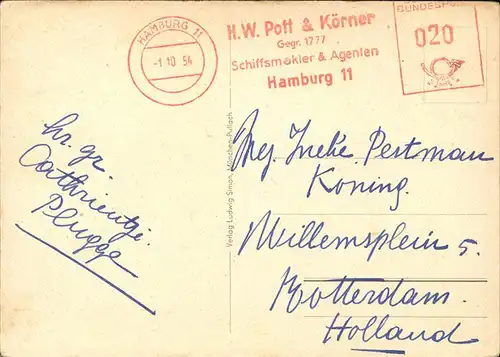 HAMBURG 11
-1 10 54
H.W. Pott & Körner
Gegr. 1777
Schiffsmakler & Agenten
Hamburg 11
BUNDESPOST
020
hr. gr.
Cathrientje.
Plugge
Verlag Ludwig Simon, München-Pullach
Mej. Ineke Pestman
Koning.
Willemsplein 5.
Rotterdam.
Holland